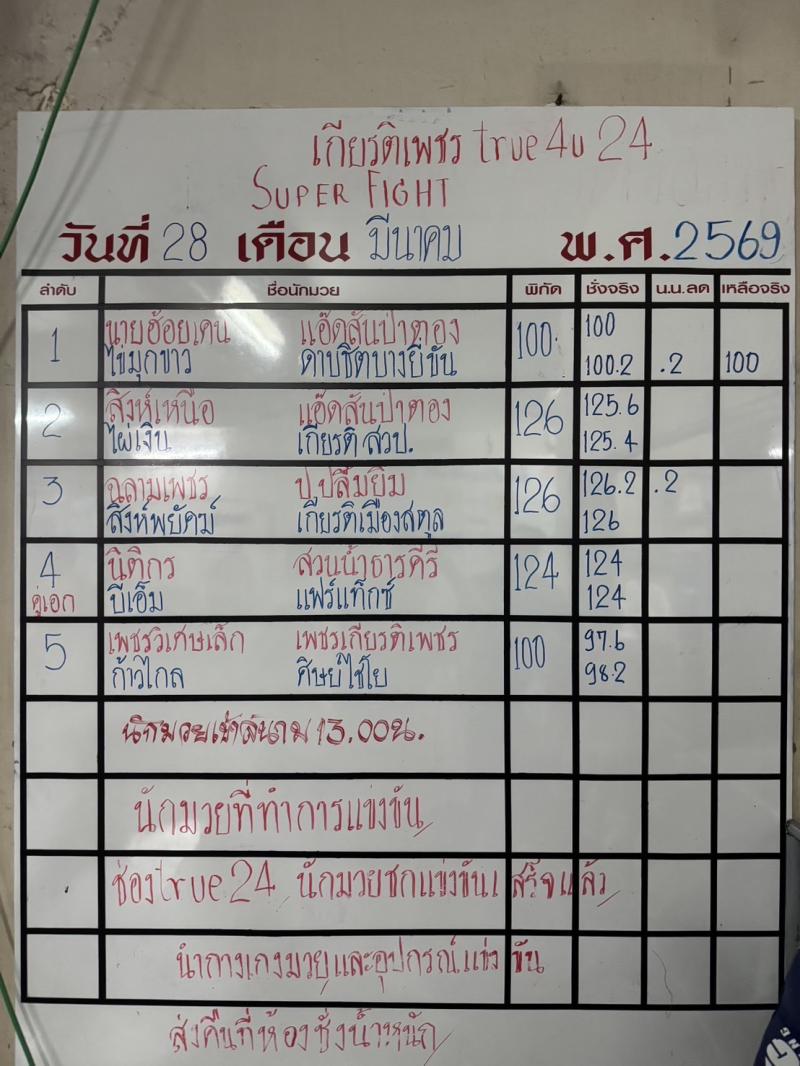 เกียรติเพชร true4u 24
SUPER FIGHT
วันที่ 28 เดือน มีนาคม พ.ศ.2569
ลำดับ ชื่อนักมวย พิกัด ชั่งจริง น.น.ลด เหลือจริง
1 นายฮ้อยเดน แอ๊ดสันป่าตอง 100 100
ไข่มุกขาว ดาบชิตบางยี่ขัน 100.2 .2 100
2 สิงห์เหนือ แอ๊ดสันป่าตอง 126 125.6
ไผ่เงิน เกียรติ สวป. 125.4
3 ฉลามเพชร ป.ปลื้มยิ้ม 126 126.2 .2
สิงห์พยัคฆ์ เกียรติเมืองสตูล 126
4 นิติกร สวนน้ำธารคีรี 124 124
คู่เอก บีเอ็ม แฟร์แท็กซ์ 124
5 เพชรวิเศษเล็ก เพชรเกียรติเพชร 100 97.6
ก้าวไกล ศิษย์ไชโย 98.2
นักมวยเข้าสนาม 13.00น.
นักมวยที่ทำการแข่งขัน
ช่องtrue24 นักมวยชกแข่งขันเสร็จแล้ว
นำกางเกงมวยและอุปกรณ์แข่งขัน
ส่งคืนที่ห้องชั่งน้ำหนัก